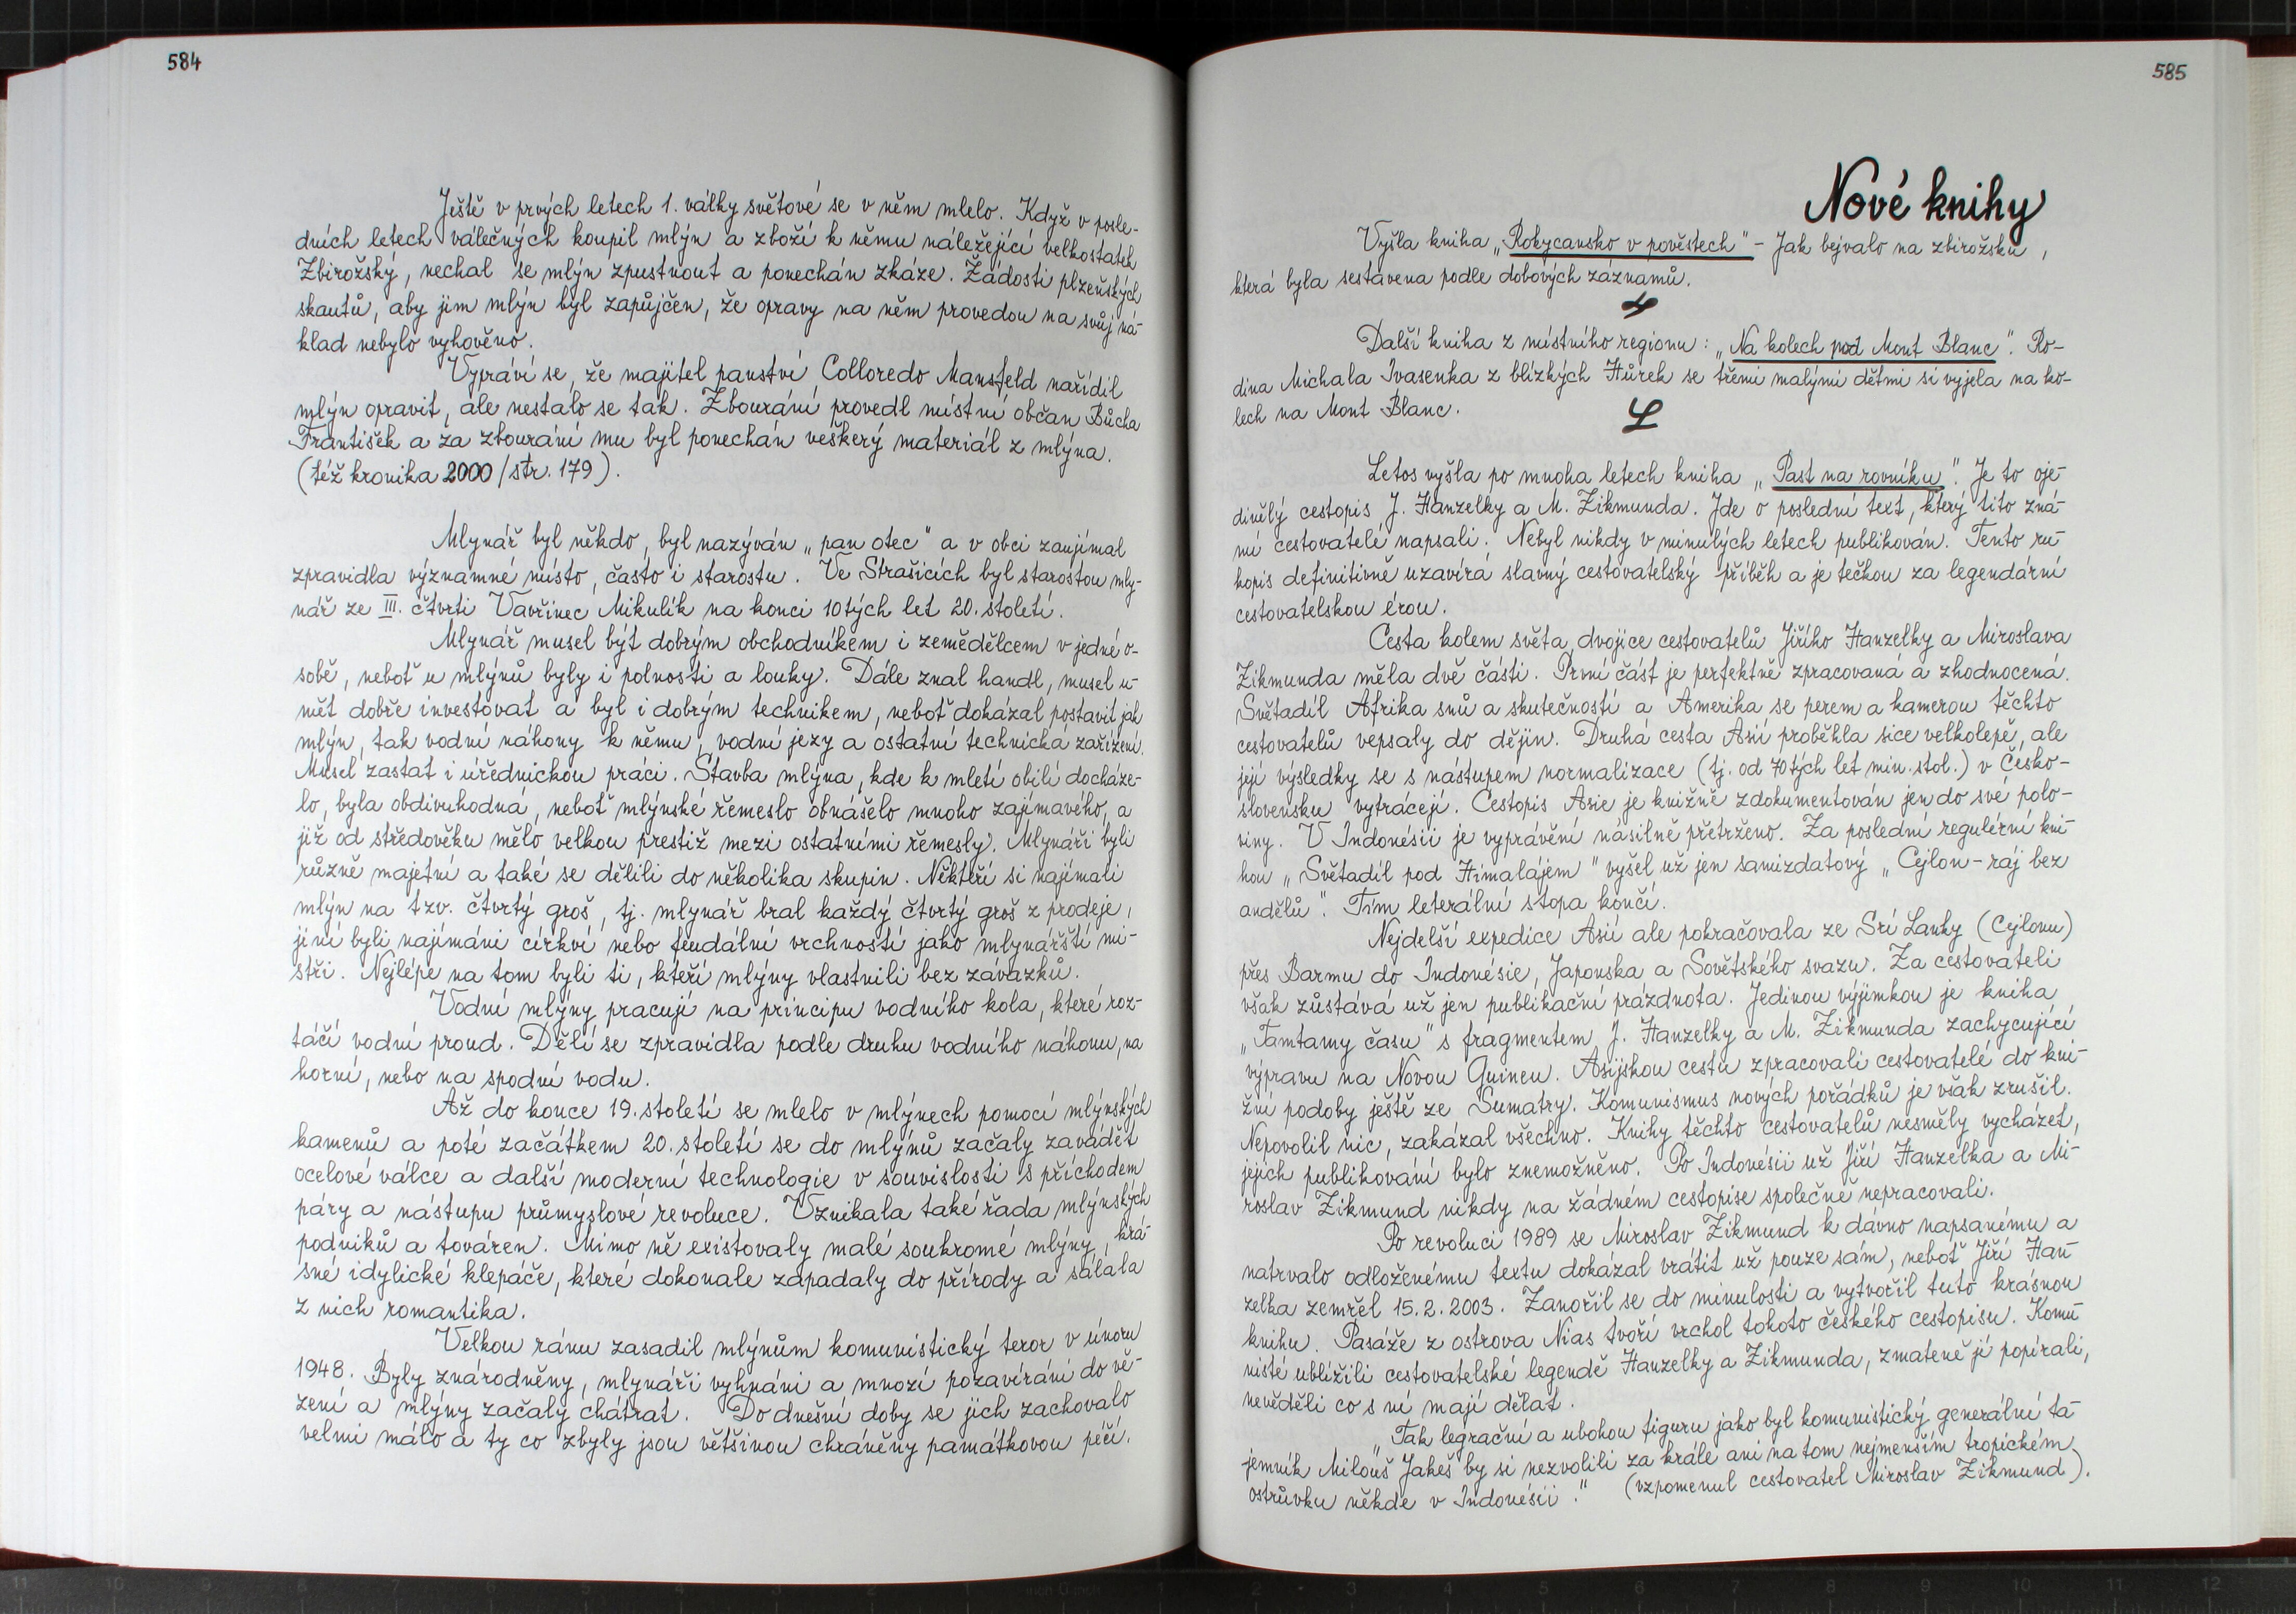 584
Ještě v prvých letech 1. války světové se v něm mlelo. Když v posle-
dních letech válečných koupil mlýn a zboží k němu náležející velkostatek
Zbirožský, nechal se mlýn zpustnout a ponechán zkáze. Žádosti plzeňských
skautů, aby jim mlýn byl zapůjčen, že opravy na něm provedou na svůj ná-
klad nebylo vyhověno.
Vypráví se, že majitel panství Colloredo Mansfeld nařídil
mlýn opravit, ale nestalo se tak. Zbourání provedl místní občan Bůcha
František a za zbourání mu byl ponechán veškerý materiál z mlýna.
(též kronika 2000/str. 179).
Mlynář byl někdo, byl nazýván „pan otec" a v obci zaujímal
zpravidla významné místo, často i starostu. Ve Strašicích byl starostou mly-
nář ze III. čtvrti Vavřinec Mikulík na konci 10tých let 20. století.
Mlynář musel být dobrým obchodníkem i zemědělcem v jedné o-
sobě, neboť u mlýnů byly i polnosti a louky. Dále znal handl, musel u-
mět dobře investovat a byl i dobrým technikem, neboť dokázal postavit jak
mlýn, tak vodní náhony k němu, vodní jezy a ostatní technická zařízení.
Musel zastat i úřednickou práci. Stavba mlýna, kde k mletí obilí docháze-
lo, byla obdivuhodná, neboť mlýnské řemeslo obnášelo mnoho zajímavého, a
již od středověku mělo velkou prestiž mezi ostatními řemesly. Mlynáři byli
různě majetní a také se dělili do několika skupin. Někteří si najímali
mlýn na tzv. čtvrtý groš, tj. mlynář bral každý čtvrtý groš z prodeje,
jiní byli najímáni církví nebo feudální vrchností jako mlynářští mi-
stři. Nejlépe na tom byli ti, kteří mlýny vlastnili bez závazků.
Vodní mlýny pracují na principu vodního kola, které roz-
táčí vodní proud. Dělí se zpravidla podle druhu vodního náhonu, na
horní, nebo na spodní vodu.
Až do konce 19. století se mlelo v mlýnech pomocí mlýnských
kamenů a poté začátkem 20. století se do mlýnů začaly zavádět
ocelové válce a další moderní technologie v souvislosti s příchodem
páry a nástupu průmyslové revoluce. Vznikala také řada mlýnských
podniků a továren. Mimo ně existovaly malé soukromé mlýny, krá-
sné idylické klepáče, které dokonale zapadaly do přírody a sálala
z nich romantika.
Velkou ránu zasadil mlýnům komunistický teror v únoru
1948. Byly znárodněny, mlynáři vyhnáni a mnozí pozavíráni do vě-
zení a mlýny začaly chátrat. Do dnešní doby se jich zachovalo
velmi málo a ty co zbyly jsou většinou chráněny památkovou péčí.
585
Nové knihy
Vyšla kniha „Rokycansko v pověstech" – Jak bejvalo na zbirožsku,
která byla sestavena podle dobových záznamů.
Další kniha z místního regionu: „Na kolech pod Mont Blanc". Ro-
dina Michala Ivasenka z blízkých Hůrek se třemi malými dětmi si vyjela na ko-
lech na Mont Blanc.
Letos vyšla po mnoha letech kniha „Past na rovníku". Je to oje-
dinělý cestopis J. Hanzelky a M. Zikmunda. Jde o poslední text, který tito zná-
mí cestovatelé napsali. Nebyl nikdy v minulých letech publikován. Tento ru-
kopis definitivně uzavírá slavný cestovatelský příběh a je tečkou za legendární
cestovatelskou érou.
Cesta kolem světa, dvojice cestovatelů Jiřího Hanzelky a Miroslava
Zikmunda měla dvě části. První část je perfektně zpracovaná a zhodnocená.
Světadíl Afrika snů a skutečností a Amerika se perem a kamerou těchto
cestovatelů vepsaly do dějin. Druhá cesta Asií proběhla sice velkolepě, ale
její výsledky se s nástupem normalizace (tj. od 70tých let min. stol.) v Česko-
slovensku vytrácejí. Cestopis Asie je knižně zdokumentován jen do své polo-
viny. V Indonésii je vyprávění násilně přetrženo. Za poslední regulérní kni-
hou „Světadíl pod Himalájem" vyšel už jen samizdatový „Cejlon – ráj bez
andělů". Tím leterální stopa končí.
Nejdelší expedice Asií ale pokračovala ze Srí Lanky (Cejlonu)
přes Barmu do Indonésie, Japonska a Sovětského svazu. Za cestovateli
však zůstává už jen publikační prázdnota. Jedinou výjimkou je kniha
„Tamtamy času" s fragmentem J. Hanzelky a M. Zikmunda zachycující
výpravu na Novou Guineu. Asijskou cestu zpracovali cestovatelé do kni-
žní podoby ještě ze Sumatry. Komunismus nových pořádků je však zrušil.
Nepovolil nic, zakázal všechno. Knihy těchto cestovatelů nesměly vycházet,
jejich publikování bylo znemožněno. Po Indonésii už Jiří Hanzelka a Mi-
roslav Zikmund nikdy na žádném cestopise společně nepracovali.
Po revoluci 1989 se Miroslav Zikmund k dávno napsanému a
natrvalo odloženému textu dokázal vrátit už pouze sám, neboť Jiří Han-
zelka zemřel 15.2.2003. Zanořil se do minulosti a vytvořil tuto krásnou
knihu. Pasáže z ostrova Nias tvoří vrchol tohoto českého cestopisu. Komu-
nisté ublížili cestovatelské legendě Hanzelky a Zikmunda, zmateně ji popírali,
nevěděli co s ní mají dělat.
„Tak legrační a ubohou figuru jako byl komunistický generální ta-
jemník Milouš Jakeš by si nezvolili za krále ani na tom nejmenším tropickém
ostrůvku někde v Indonésii." (vzpomenul cestovatel Miroslav Zikmund).